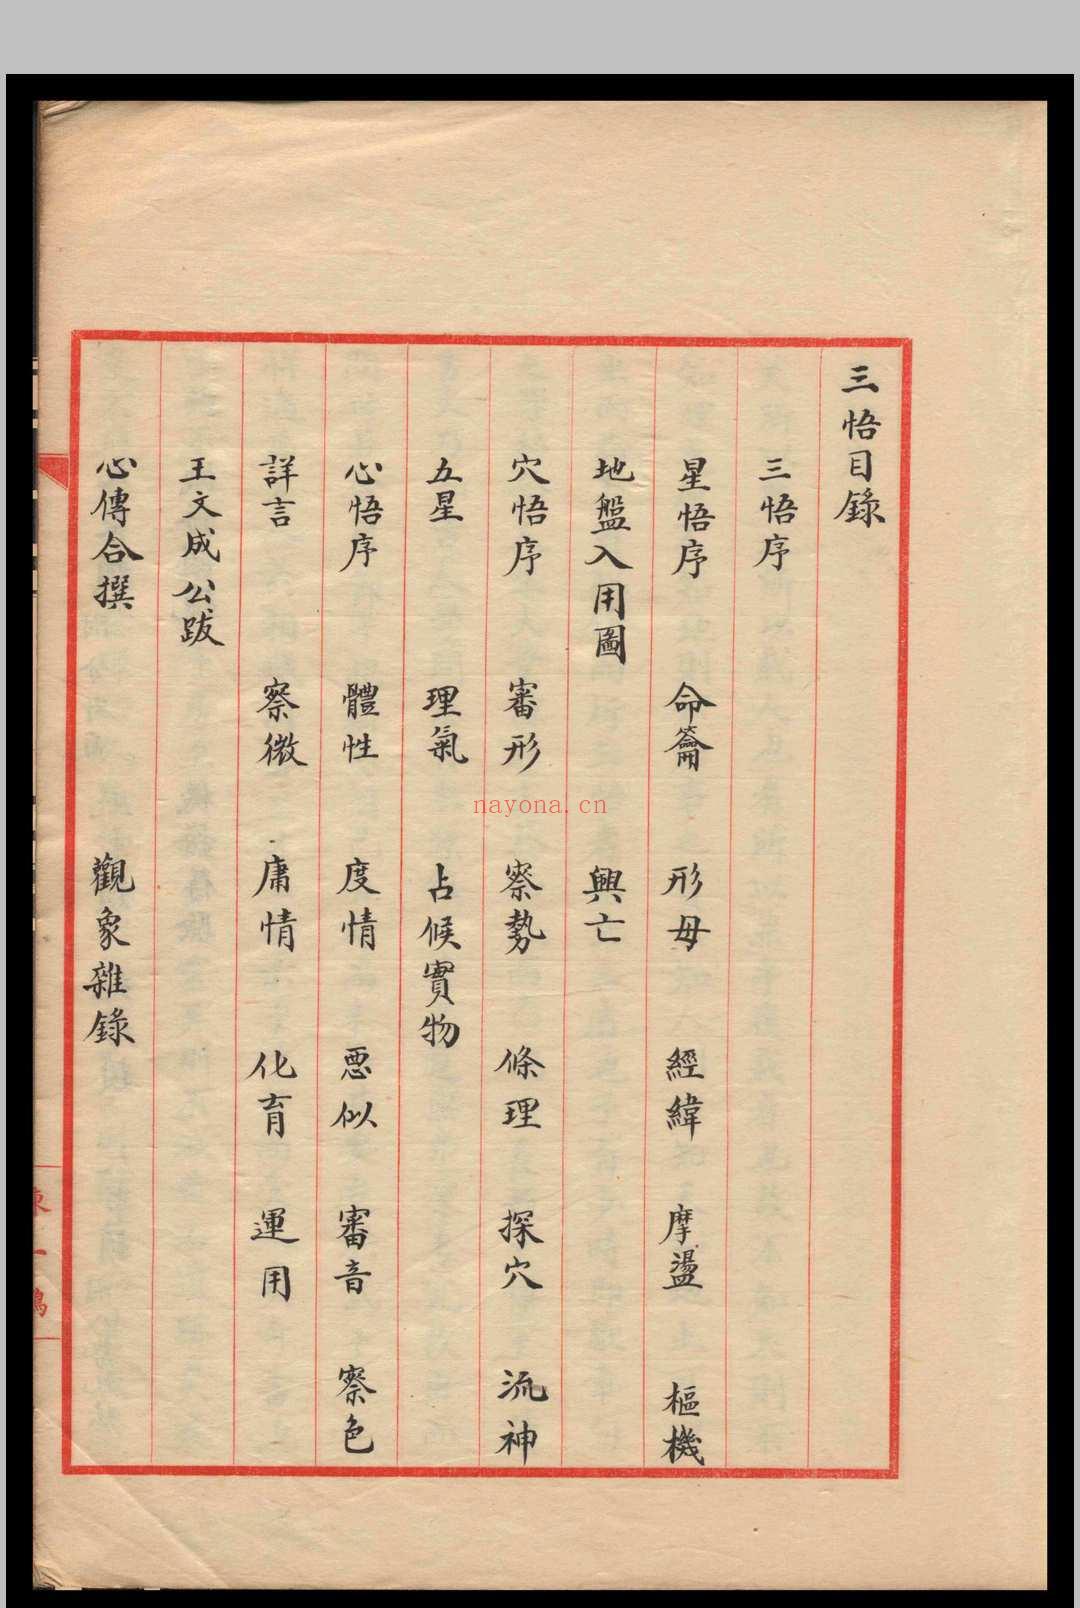 三悟目錄
三悟序
星悟序 命籥 形母 經緯 摩盪 樞機
地盤入用圖 興亡
穴悟序 審形 察勢 條理 探穴 流神
五星 理氣 占候實物
心悟序 體性 度情 惡似 審音 察色
詳言 察微 庸情 化育 運用
王文成公跋
心傳合撰 觀象雜錄
nayona.cn